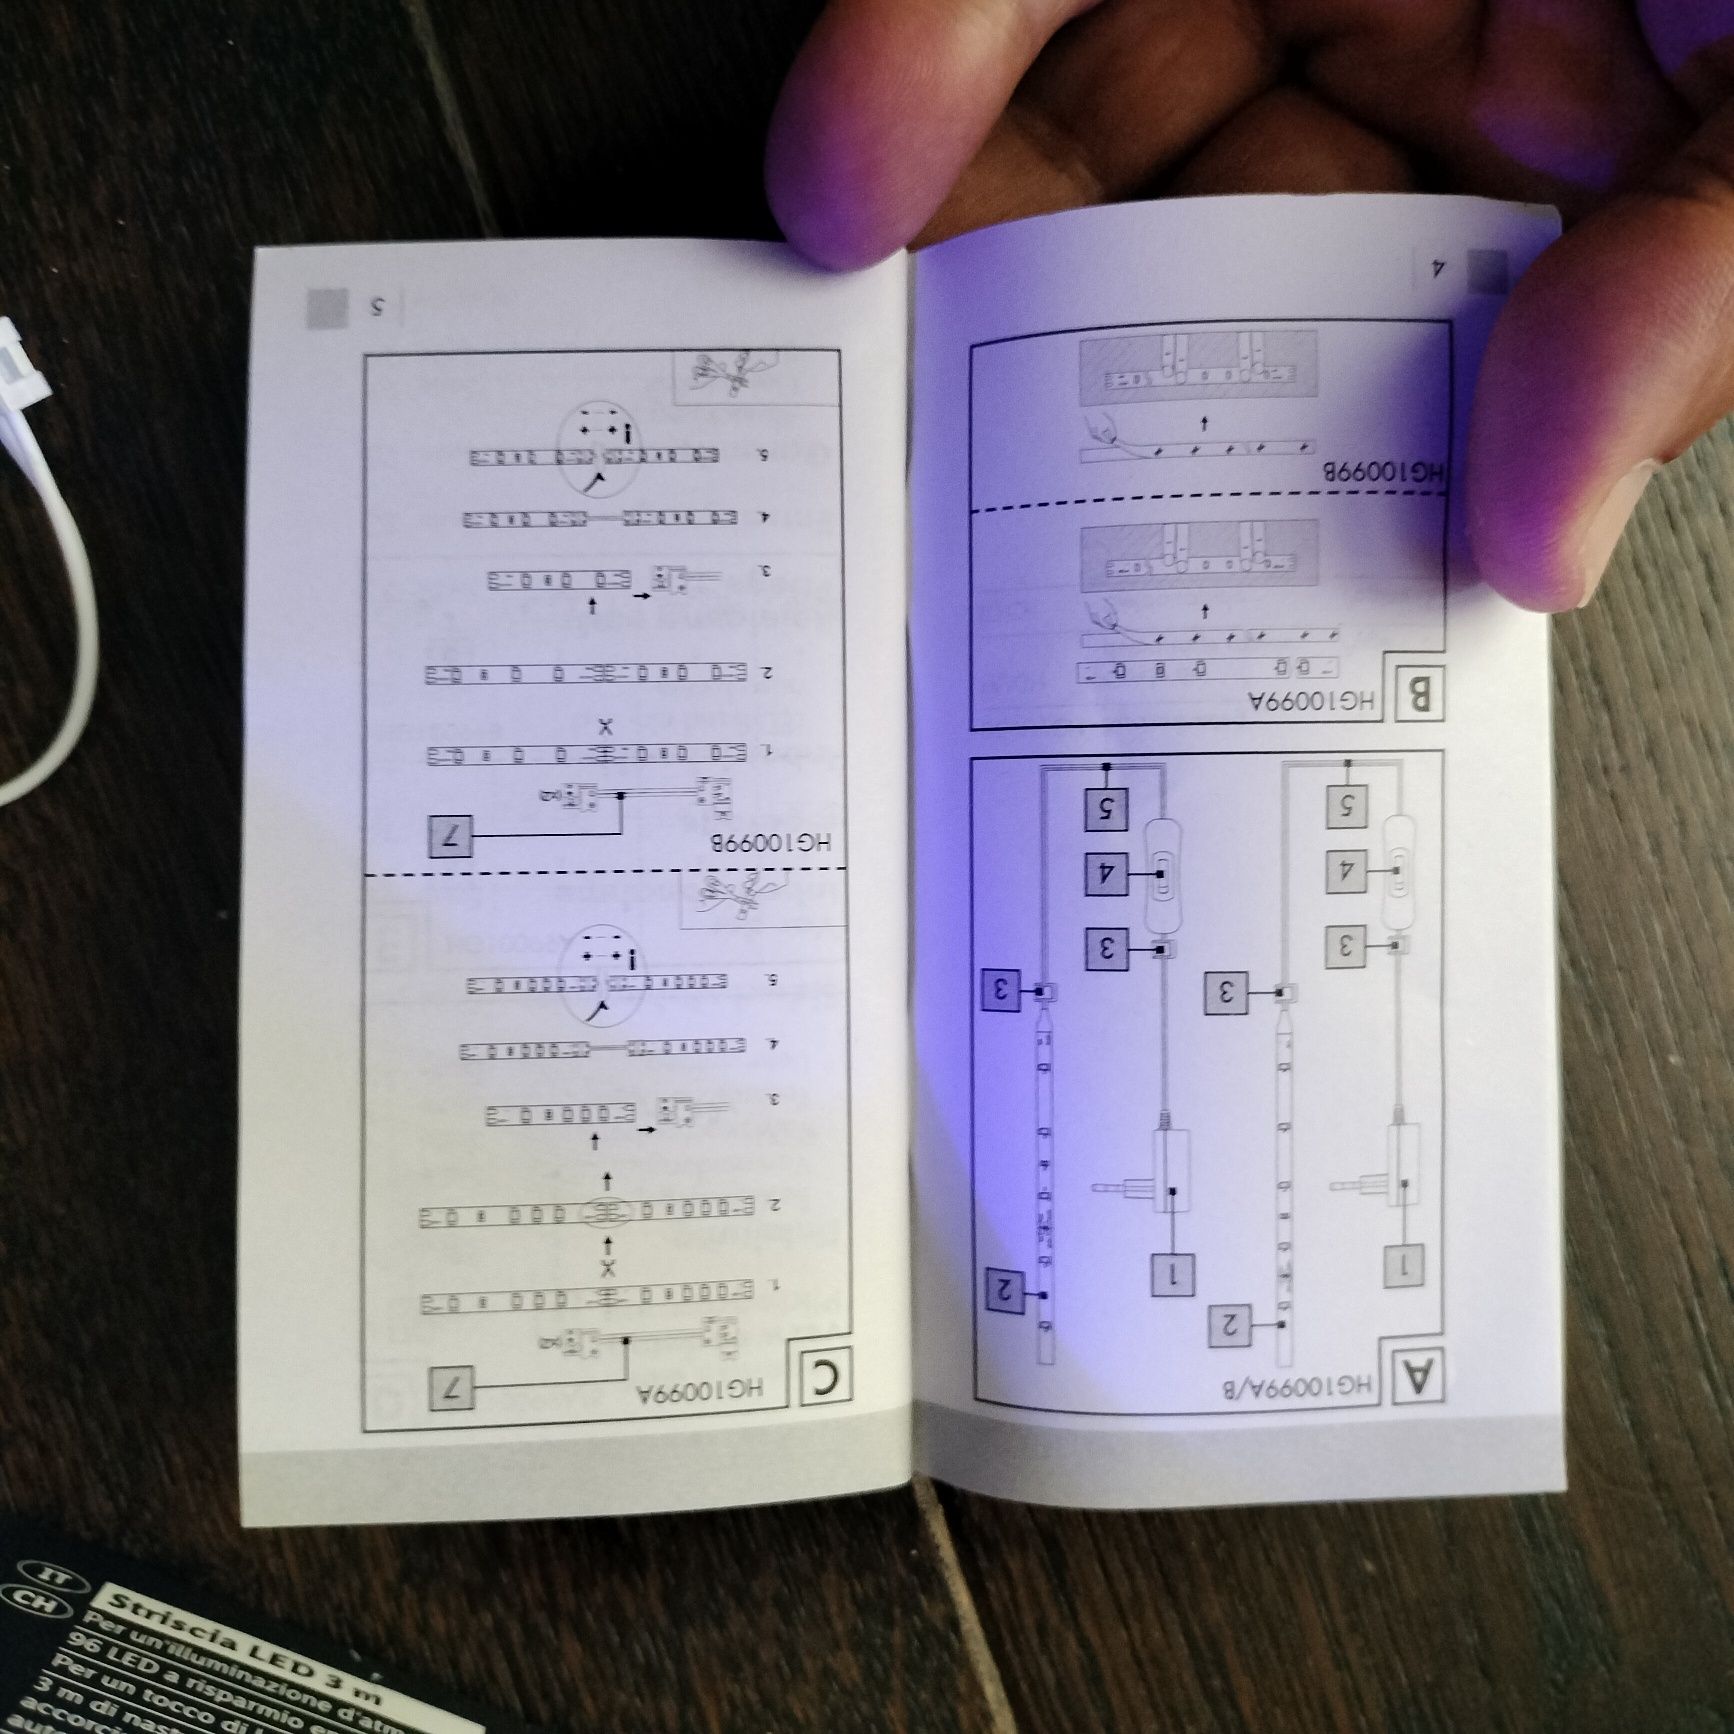 4
A
HG10099A/B
1
2
3
3
4
5
1
2
3
3
4
5
B
HG10099A
HG10099B
5
C
HG10099A
7
(x2)
1.
X
2.
3.
4.
5.
i
HG10099B
7
(x2)
1.
X
2.
3.
4.
5.
i
IT
CH
Striscia LED 3 m
Per un'illuminazione d'atm
96 LED a risparmio en
Per un tocco di
3 m di nast
accorci